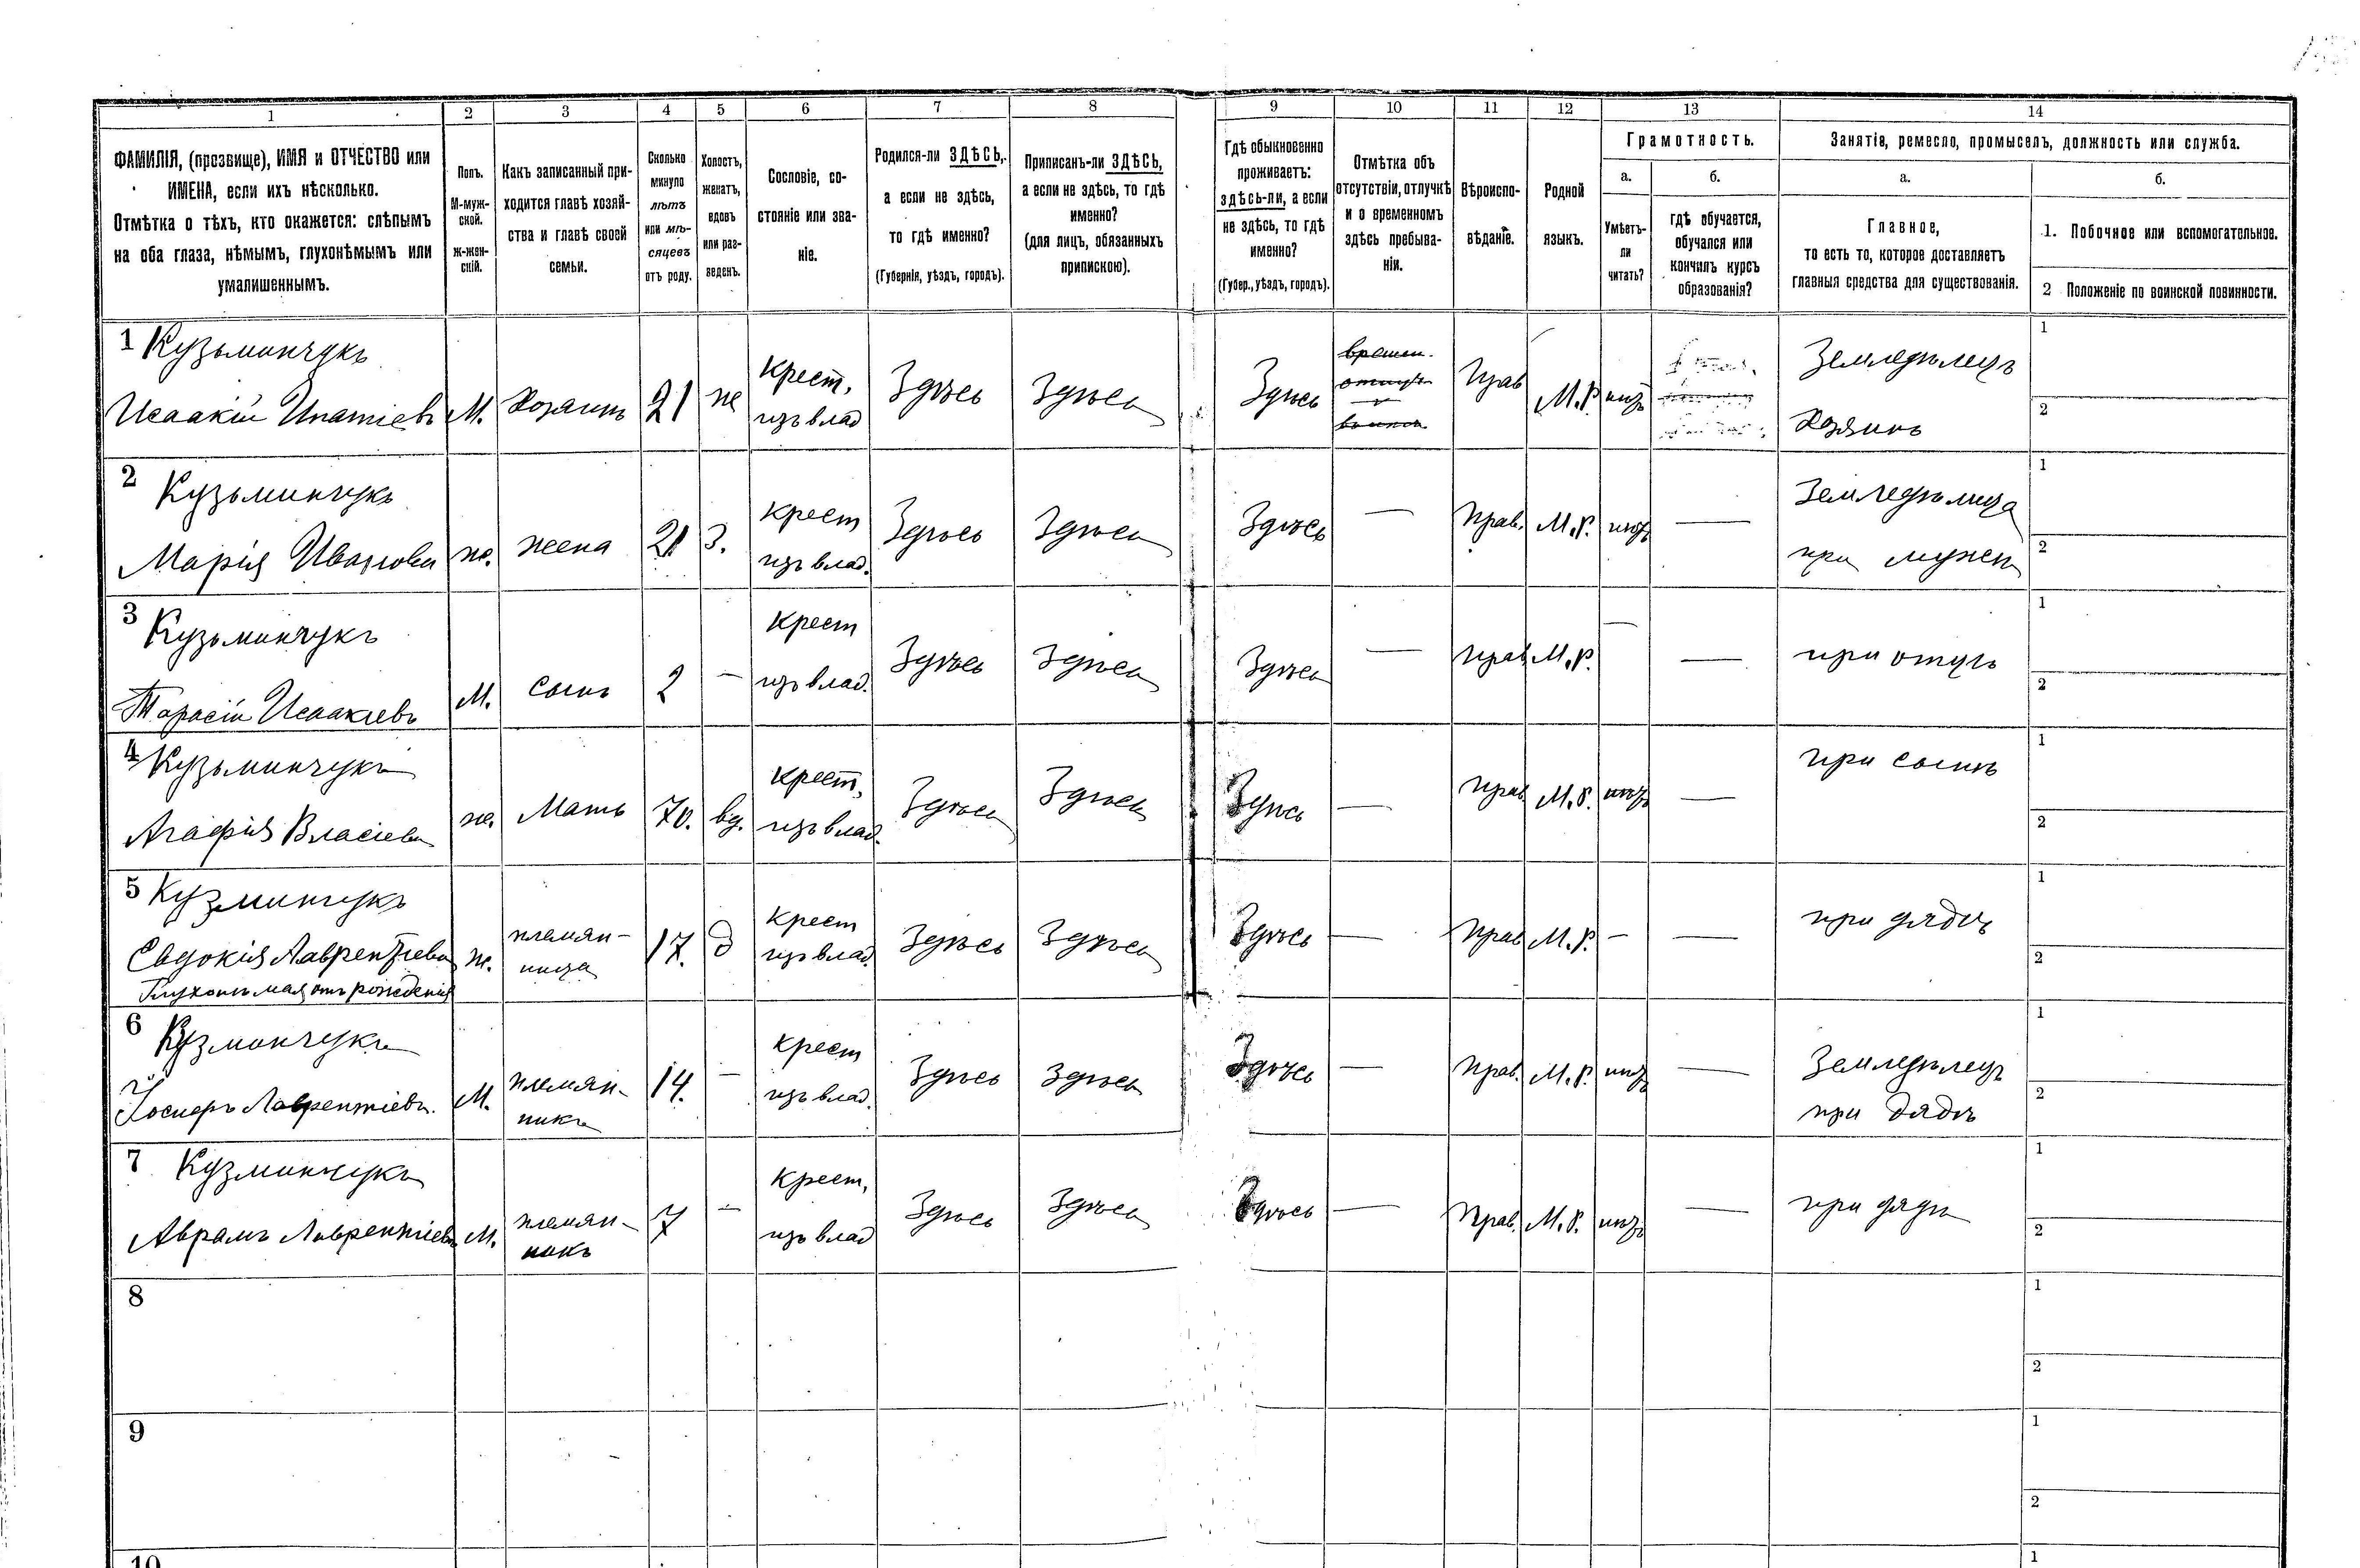 1
2
3
4
5
6
7
8
9
10
11
12
13
14
ФАМИЛІЯ, (прозвище), ИМЯ и ОТЧЕСТВО или
ИМЕНА, если ихъ нѣсколько.
Отмѣтка о тѣхъ, кто окажется: слѣпымъ
на оба глаза, нѣмымъ, глухонѣмымъ или
умалишеннымъ.
Полъ.
М-муж-
ской.
Ж-жен-
скій.
Какъ записанный при-
ходится главѣ хозяй-
ства и главѣ своей
семьи.
Сколько
минуло
лѣтъ
или мѣ-
сяцевъ
отъ роду.
Холостъ,
женатъ,
вдовъ
или раз-
веденъ.
Сословіе, со-
стояніе или зва-
ніе.
Родился-ли ЗДѢСЬ,
а если не здѣсь,
то гдѣ именно?
(Губернія, уѣздъ, городъ).
Приписанъ-ли ЗДѢСЬ,
а если не здѣсь, то гдѣ
именно?
(для лицъ, обязанныхъ
припискою).
Гдѣ обыкновенно
проживаетъ:
здѣсь-ли, а если
не здѣсь, то гдѣ
именно?
(Губер., уѣздъ, городъ).
Отмѣтка объ
отсутствіи, отлучкѣ
и о временномъ
здѣсь пребыва-
ніи.
Вѣроиспо-
вѣданіе.
Родной
языкъ.
Грамотность.
а.
Умѣетъ-
ли
читать?
б.
гдѣ обучается,
обучался или
кончилъ курсъ
образованія?
Занятіе, ремесло, промыселъ, должность или служба.
а.
Главное,
то есть то, которое доставляетъ
главныя средства для существованія.
б.
1. Побочное или вспомогательное.
2 Положеніе по воинской повинности.
1 Кузьминчукъ
Исаакій Ипатіевъ
М.
Хозяинъ
21
же
Крест.
изъ влад
Здѣсь
Здѣсь
Здѣсь
Прав
М.Р.
нѣтъ
Земледѣлецъ
Хозяинъ
1
2
2 Кузьминчукъ
Марія Иванова
ж.
жена
21
З.
Крест
изъ влад.
Здѣсь
Здѣсь
Здѣсь
—
Прав.
М.Р.
нѣтъ
—
Земледѣлица
при мужѣ
1
2
3 Кузьминчукъ
Тарасій Исаакіевъ
М.
сынъ
2
—
Крест
изъ влад.
Здѣсь
Здѣсь
Здѣсь
—
Прав
М.Р.
—
—
при отцѣ
1
2
4 Кузьминчукъ
Агафія Власіева
ж.
Мать
70.
вд.
Крест.
изъ влад.
Здѣсь
Здѣсь
Здѣсь
—
Прав
М.Р.
нѣтъ
—
при сынѣ
1
2
5 Кузминчукъ
Евдокія Лаврентіева
Глухонѣмая отъ рожденія
ж.
племян-
ница
17.
д
Крест
изъ влад.
Здѣсь
Здѣсь
Здѣсь
—
Прав
М.Р.
—
—
при дядѣ
1
2
6 Кузминчукъ
Іосифъ Лаврентіевъ.
М.
племян-
никъ
14.
—
Крест
изъ влад.
Здѣсь
Здѣсь
Здѣсь
—
Прав.
М.Р.
нѣтъ
—
Земледѣлецъ
при дядѣ
1
2
7 Кузминчукъ
Аврамъ Лаврентіевъ
М.
племян-
никъ
7
—
Крест.
изъ влад
Здѣсь
Здѣсь
Здѣсь
—
Прав.
М.Р.
нѣтъ
—
при дядѣ
1
2
8
1
2
9
1
2
10
1